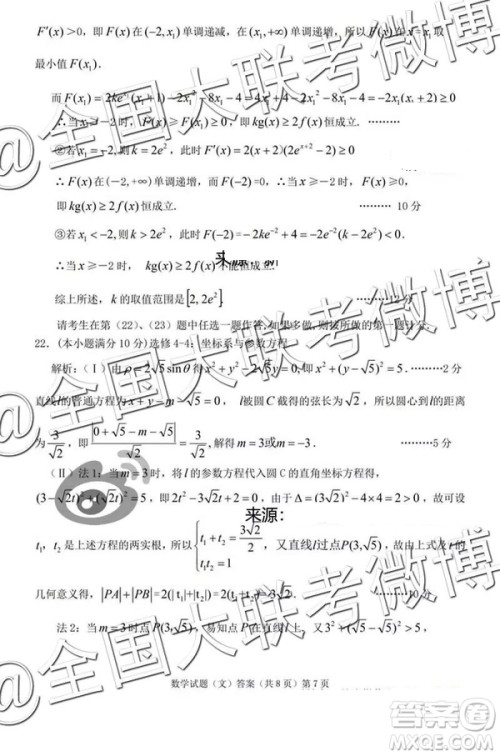 F′(x)>0，即 F(x)在(−2,x₁)单调递减，在(x₁,+∞)单调递增，所以F(x)在x=x₁取
最小值F(x₁).
而F(x₁)=2ke^{x₁}(x₁+1)−2x₁²−8x₁−4=4x₁+4−2x₁²−8x₁−4=−2x₁(x₁+2)≥0
∴当x≥−2时，kg(x)≥2f(x)恒成立. ………
②若x₁=−2,则k=2e²，此时F′(x)=2(x+2)(2e^{x+2}−2)≥0
∴F(x)在(−2,+∞)单调递增，而F(−2)=0，∴当x≥−2时，
即kg(x)≥2f(x)恒成立. ……… 10分
③若x₁<−2,则k>2e²，此时F(−2)=−2ke^{−2}+4=−2e^{−2}(k−2e²)<0.
∴当x≥−2时，kg(x)≥2f(x)不能恒成立.
综上所述，k的取值范围是[2,2e²]. ………12分
请考生在第（22）、（23）题中任选一题作答,如果多做,则按所做的第一题计分.
22.（本小题满分10分）选修4-4：坐标系与参数方程
解析：（Ⅰ）由ρ=2√5sinθ得x²+y²−2√5y=0, ………2分
直线l的普通方程为x+y−m−√5=0， l被圆C截得的弦长为√2, 所以圆心到l的距离
为3/√2, 即|0+√5−m−√5|/√2=3/√2, 解得m=3或m=−3. ………5分
（Ⅱ）法1：当m=3时，将l的参数方程代入圆C的直角坐标方程得，
(3−√2t)²+(√2t)²=5，即2t²−3√2t+2=0，由于Δ=(3√2)²−4×4=2>0，故可设
来源：
t₁,t₂是上述方程的两实根，所以{t₁+t₂=3√2/2, t₁t₂=1，又直线l过点P(3,√5)，故由上式及t的
几何意义得，|PA|+|PB|=2(|t₁|+|t₂|)=2(t₁+t₂)=3√2. ………10分
法2：当m=3时点P(3,√5)，易知点P在直线l上，又3²+(√5−√5)²>5，
数学试题（文）答案（共8页）第7页
@全国大联考微博
@全国大联考微博